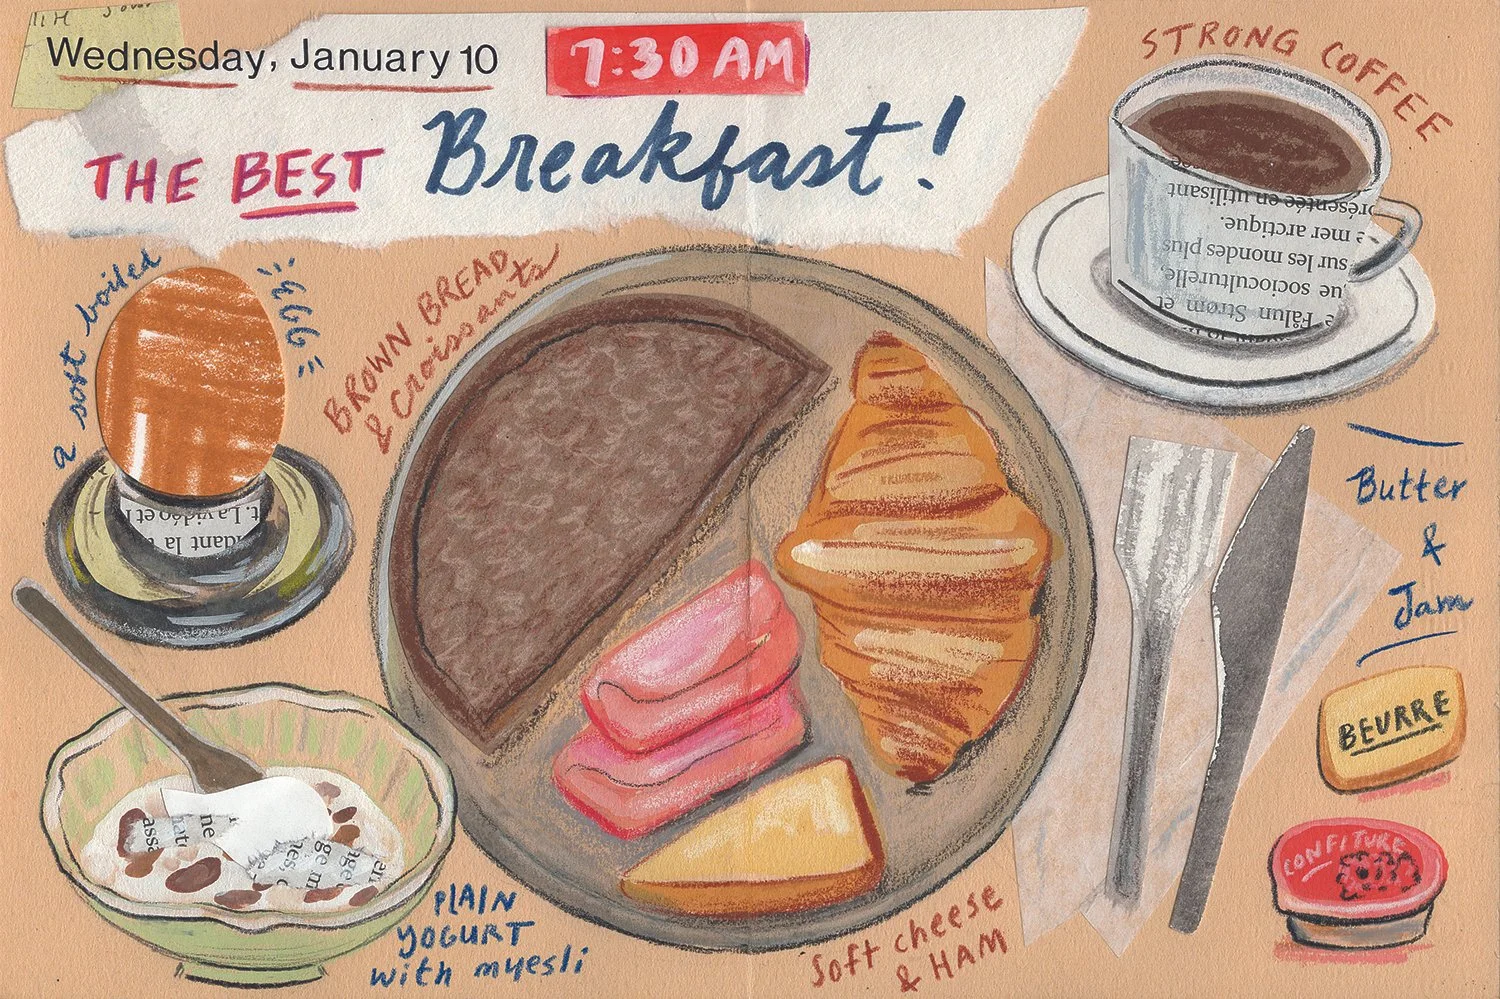 Wednesday, January 10
7:30 AM
THE BEST Breakfast!
STRONG COFFEE
a soft boiled
"EGG"
BROWN BREAD
& Croissants
présentée en utilisant
mer arctique.
sur les mondes plus
que socioculturelle,
Fålun Strøm et
t. La vidéo et
dant la
Butter
&
Jam
BEURRE
CONFITURE
PLAIN
YOGURT
with myesli
Soft cheese
& HAM